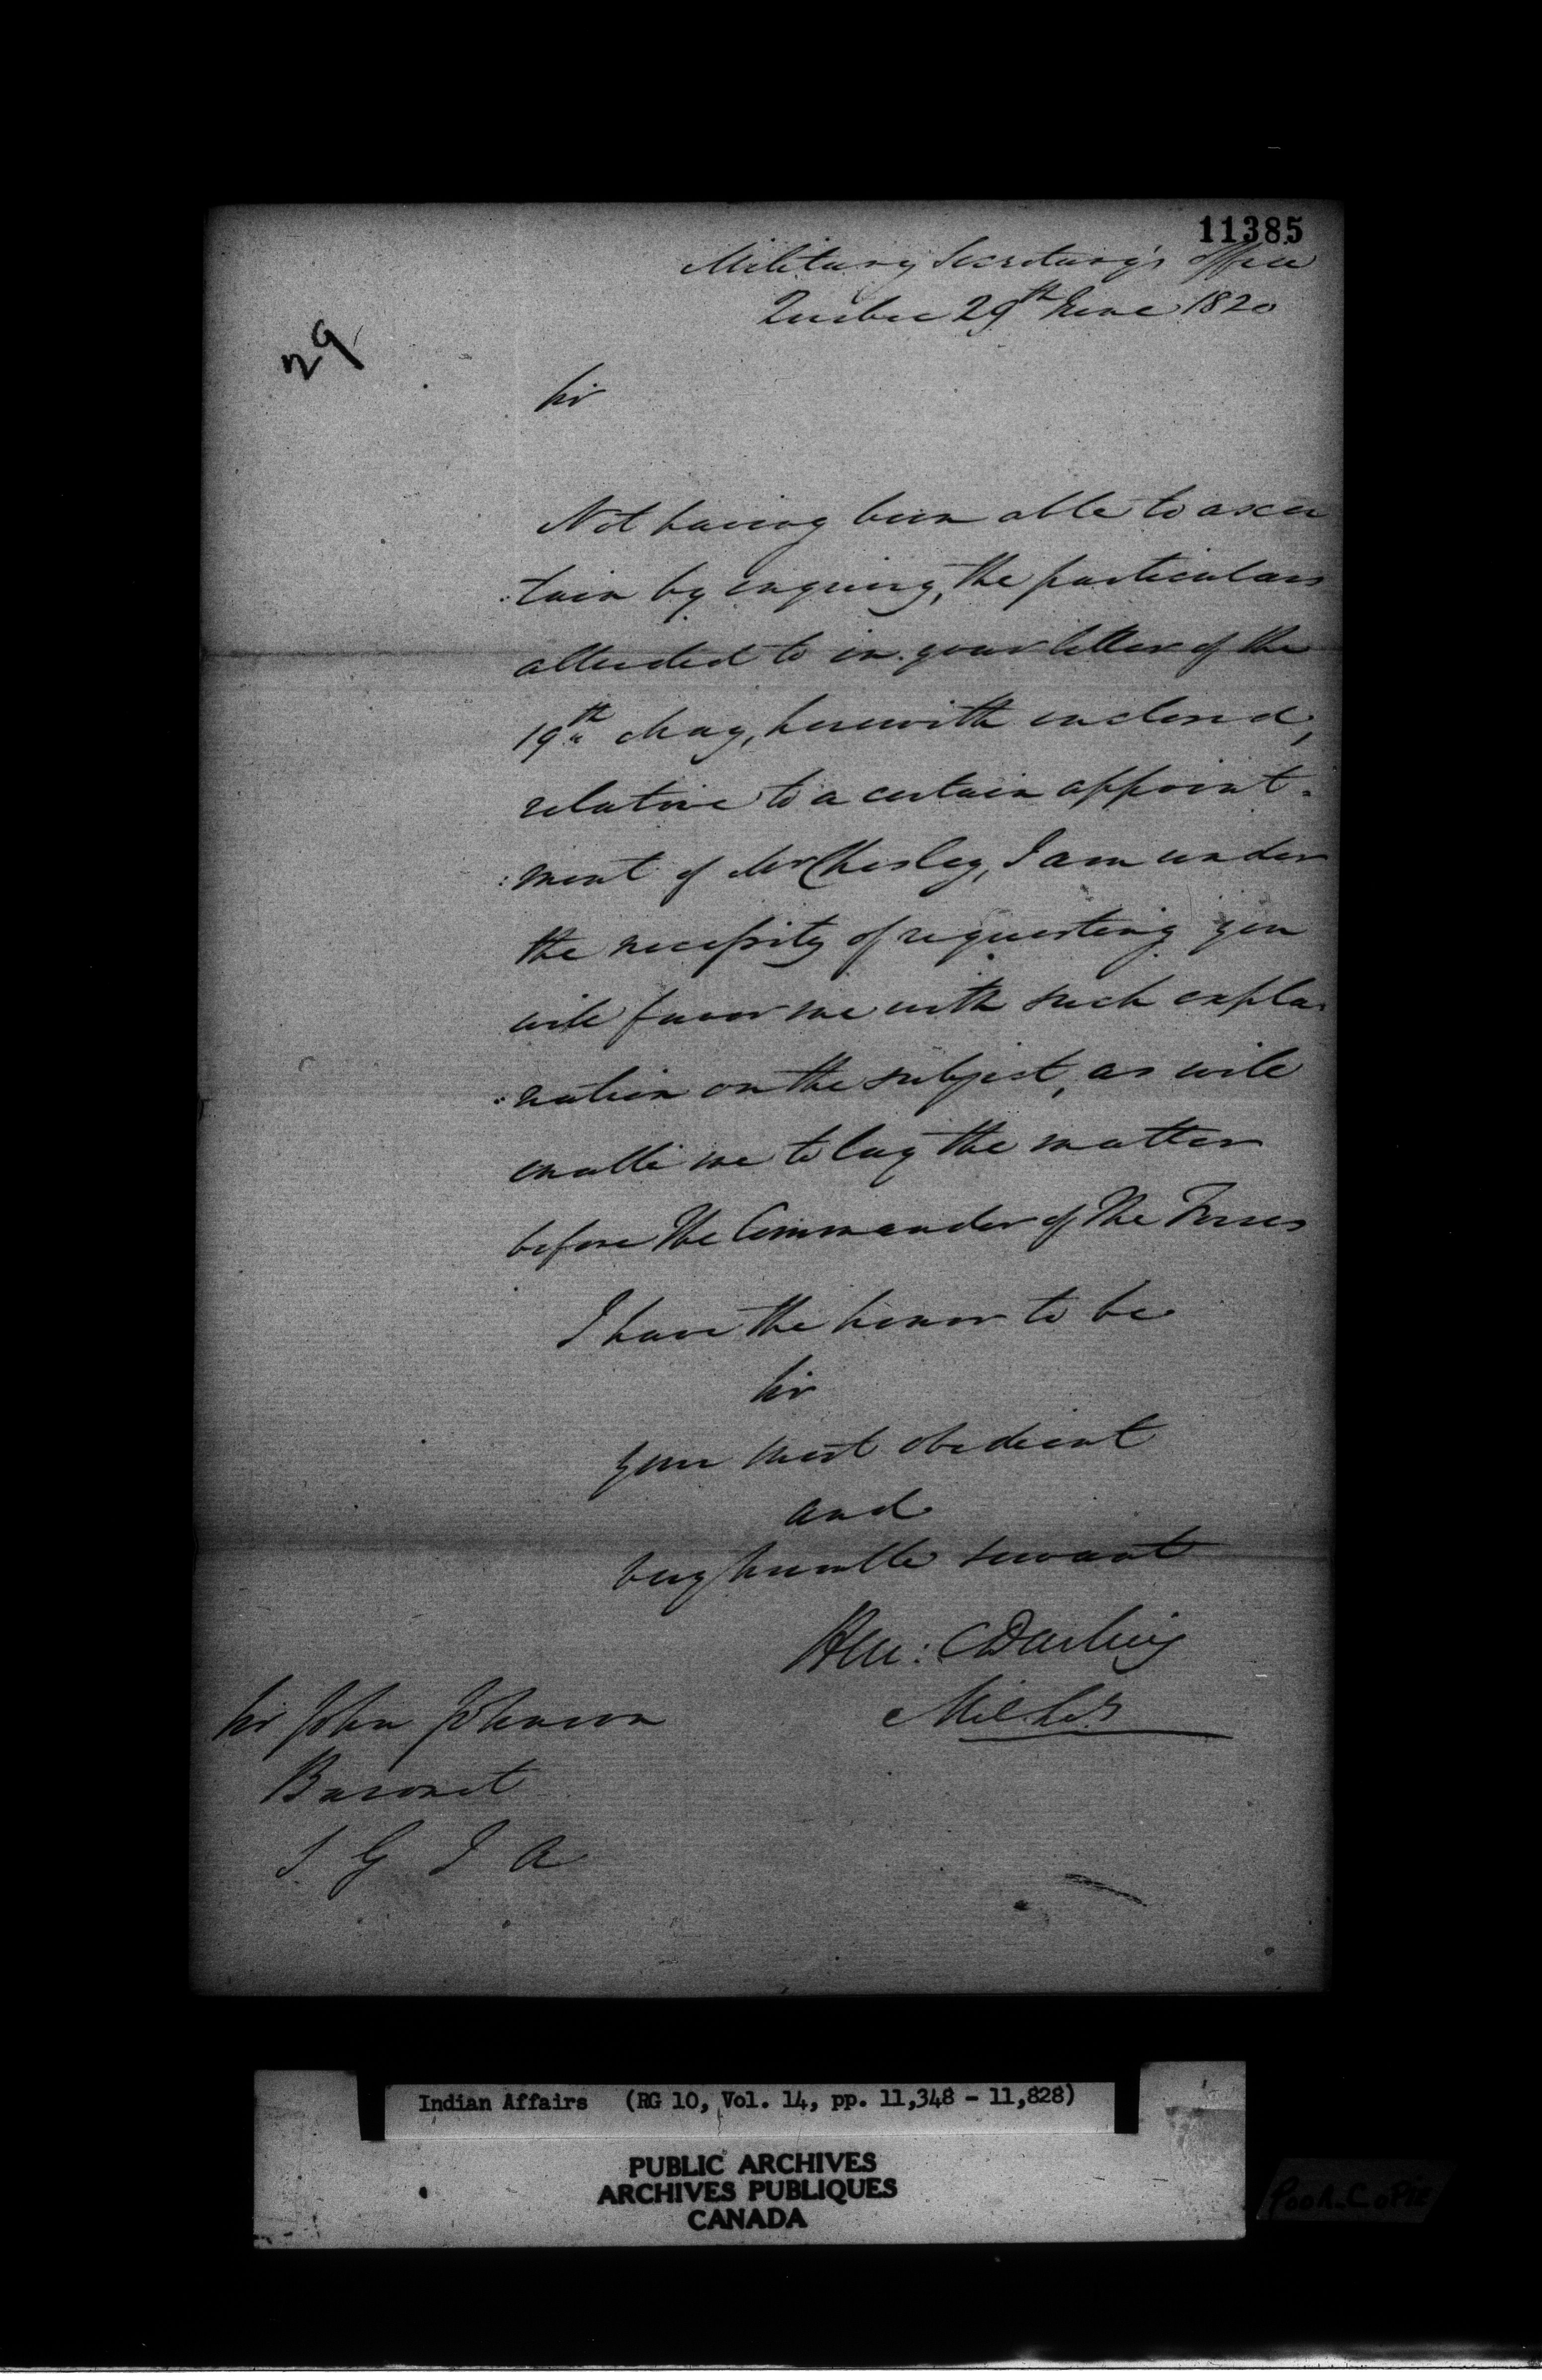 11385
Military Secretary's Office
Quebec 29th June 1820
29
Sir
Not having been able to ascer
:tain by enquiry, the particulars
alluded to in your letter of the
19th May, herewith enclosed,
relative to a certain appoint-
:ment of Mr Chesley, I am under
the necessity of requesting you
will favor me with such expla-
:nation on the subject, as will
enable me to lay the matter
before the Commander of the Forces
I have the honor to be
Sir
your most obedient
and
very humble servant
H. C. Darling
Mil. Sec.
Sir John Johnson
Baronet
S G I A
Indian Affairs (RG 10, Vol. 14, pp. 11,348 - 11,828)
PUBLIC ARCHIVES
ARCHIVES PUBLIQUES
CANADA
POOR COPIE